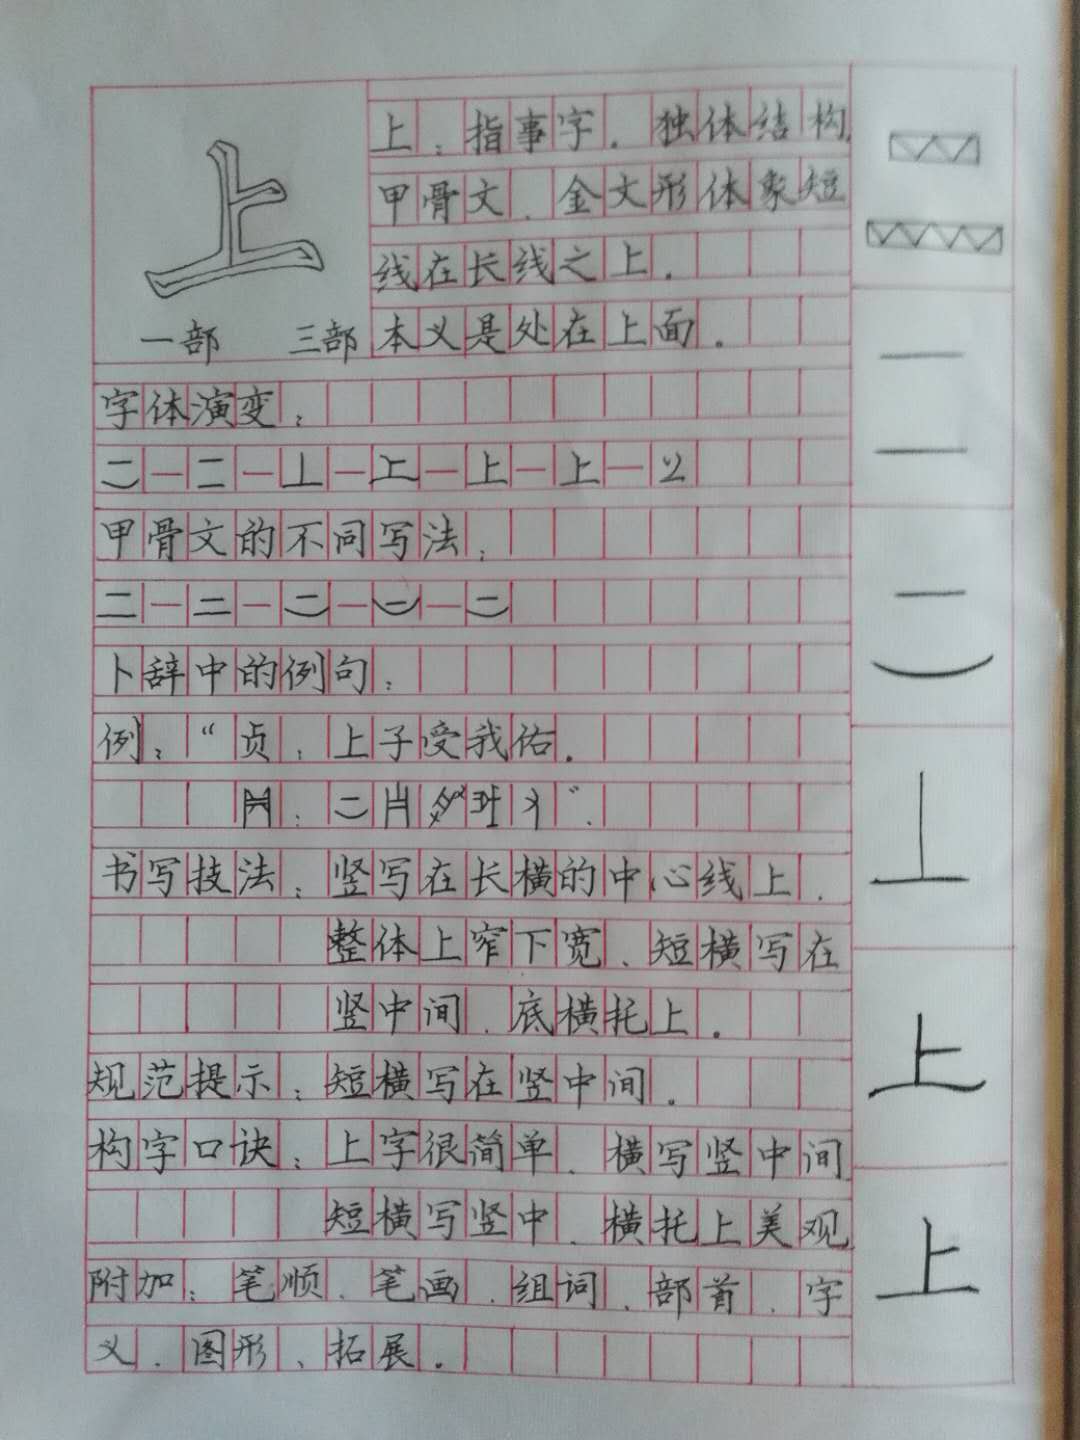 上
一部 三部
上：指事字．独体结构
甲骨文．金文形体象短
线在长线之上．
本义是处在上面．
字体演变：
二一二一丄一上一上一上一
甲骨文的不同写法：
二一二一二一一二
卜辞中的例句：
例："贞：上子受我佑．
书写技法：竖写在长横的中心线上．
整体上窄下宽．短横写在
竖中间．底横托上．
规范提示：短横写在竖中间．
构字口诀：上字很简单．横写竖中间
短横写竖中．横托上美观
附加：笔顺．笔画．组词．部首．字
义．图形、拓展．
二
丄
上
上